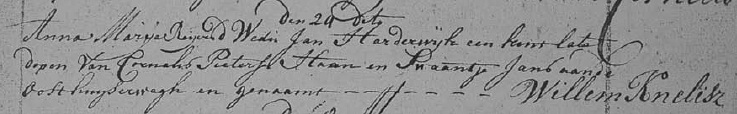 den 24 dito
Anna Maria Reijnd Wedu Jan Harderwijk een kint late
dopen Van Cornelis Pieterse Haan en Swaantje Jans aande
Oosthuijserwegh en genaamt Willem Knelisz